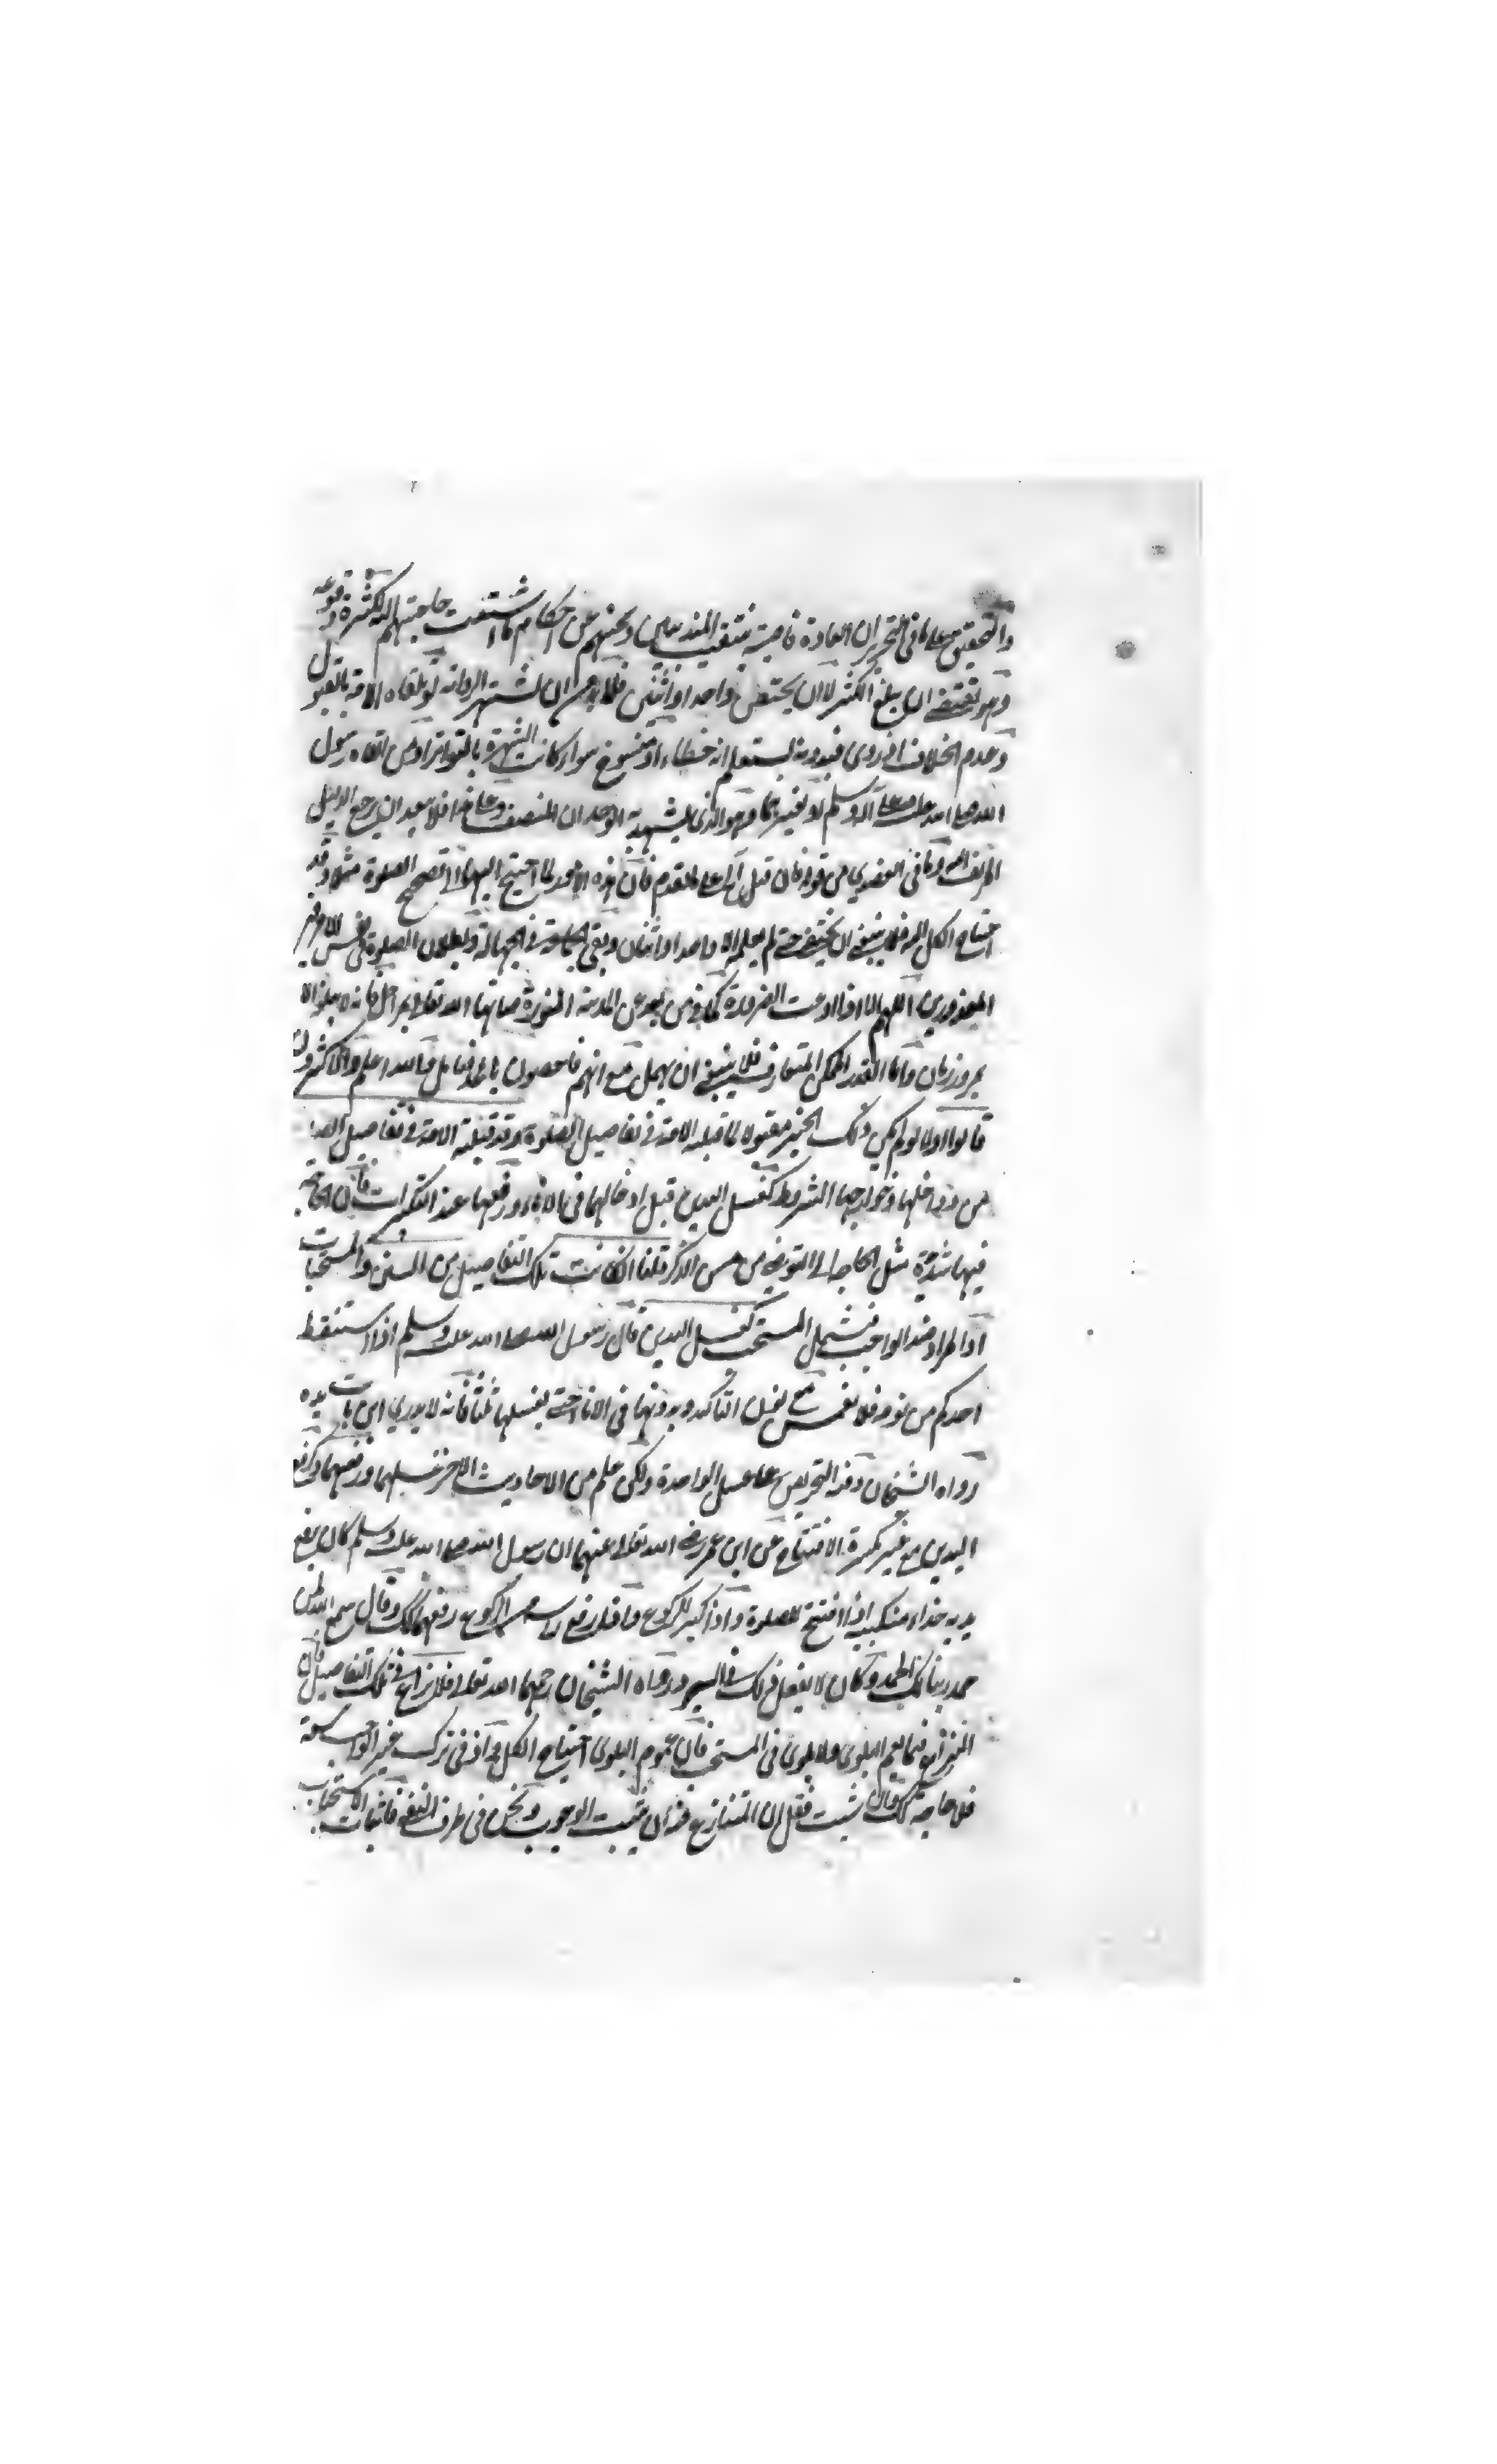 والتحقيق على ما في التحرير ان العادة قاضية بتنقيب المتدينين وبحثهم عن احكام ما اشتدت حاجتهم اليه لكثرة وقوعه
وهو تقتضي ان يبلغ الكثر لا ان يختص واحد او اثنين فلا بد من ان يشتهر الرواية او تلقاه الامة بالقبول
وعدم الخلاف اذ روى فبدونه يستعلم انه خطاء او منسوخ سواء كانت الشهرة بالتواتر او من القاء رسول
الله صلى الله عليه وعلى آله وسلم او بغيرهما وهو الذي يشهد به الوجدان المنصف وعلى هذا فلا يبعد ان يرجع الدليل
المزيف اليه وما في العضدي من قوله فان قيل على المقدم فان هذه الامور لما احتيج اليها الى تصحيح الصلوة مثلا وقد
احتاج الكل اليه فلا ينبغي ان يختفي حتى لم يعلمه الا واحد او اثنان وبقي في الجهالة وبطلان الصلوة في نفس الامر غير
المعذورين اللهم الا اذا ادعت الضرورة كما في من بعد عن المدينة المنورة صانها الله تعالى بمراحل فانه لا يبلغ الا
بمرور زمان واما القدر الممكن المتعارف فلا ينبغي ان يهمل مع انهم فاحصون بالجد فتامل والله اعلم والاكثرون
قالوا اولا لو لم يكن ذلك الخبر مقبولا لما قبلته الامة في تفاصيل الصلوة وقد قبلته الامة في تفاصيل الصلوة
من دواخلها وخوارجها الشروط كغسل اليدين قبل ادخالهما في الاناء ورفعهما عند التكبيرات فان الحاجة
فيها شديدة مثل الحاجة الى التوضي من مس الذكر قلنا ان كانت تلك التفاصيل من السنن والمستحبات
اذ المراد ضد الواجب فيشمل المستحب كغسل اليدين قال رسول الله صلى الله عليه وسلم اذا استيقظ
احدكم من نومه فلا يغمس مع نون التاكيد وبدونها في الاناء حتى يغسلها ثلثا فانه لا يدري اين باتت يده
رواه الشيخان وفيه التحريص على غسل الواحدة ولكن علم من الاحاديث الاخر غسلهما ورفعهما وكرفع
اليدين مع غير تكبيرة الافتتاح عن ابن عمر رضي الله تعالى عنهما ان رسول الله صلى الله عليه وسلم كان يرفع
يديه حذاء منكبيه اذا افتتح الصلوة واذا كبر للركوع واذا رفع راسه من الركوع رفعهما كذلك وقال سمع الله لمن
حمده ربنا لك الحمد وكان لا يفعل ذلك في السجود رواه الشيخان رحمهما الله تعالى فلا نزاع في تلك التفاصيل فان
النزاع فيما يعم البلوى ولا بلوى في المستحب فان عموم البلوى احتياج الكل واذ في ترك غير الواجب سعة
فلا حاجة لك وان شيت فقل ان المتنازع فيه ان يثبت الوجوب ونحن في طرف النفي فاثبات الاستحباب